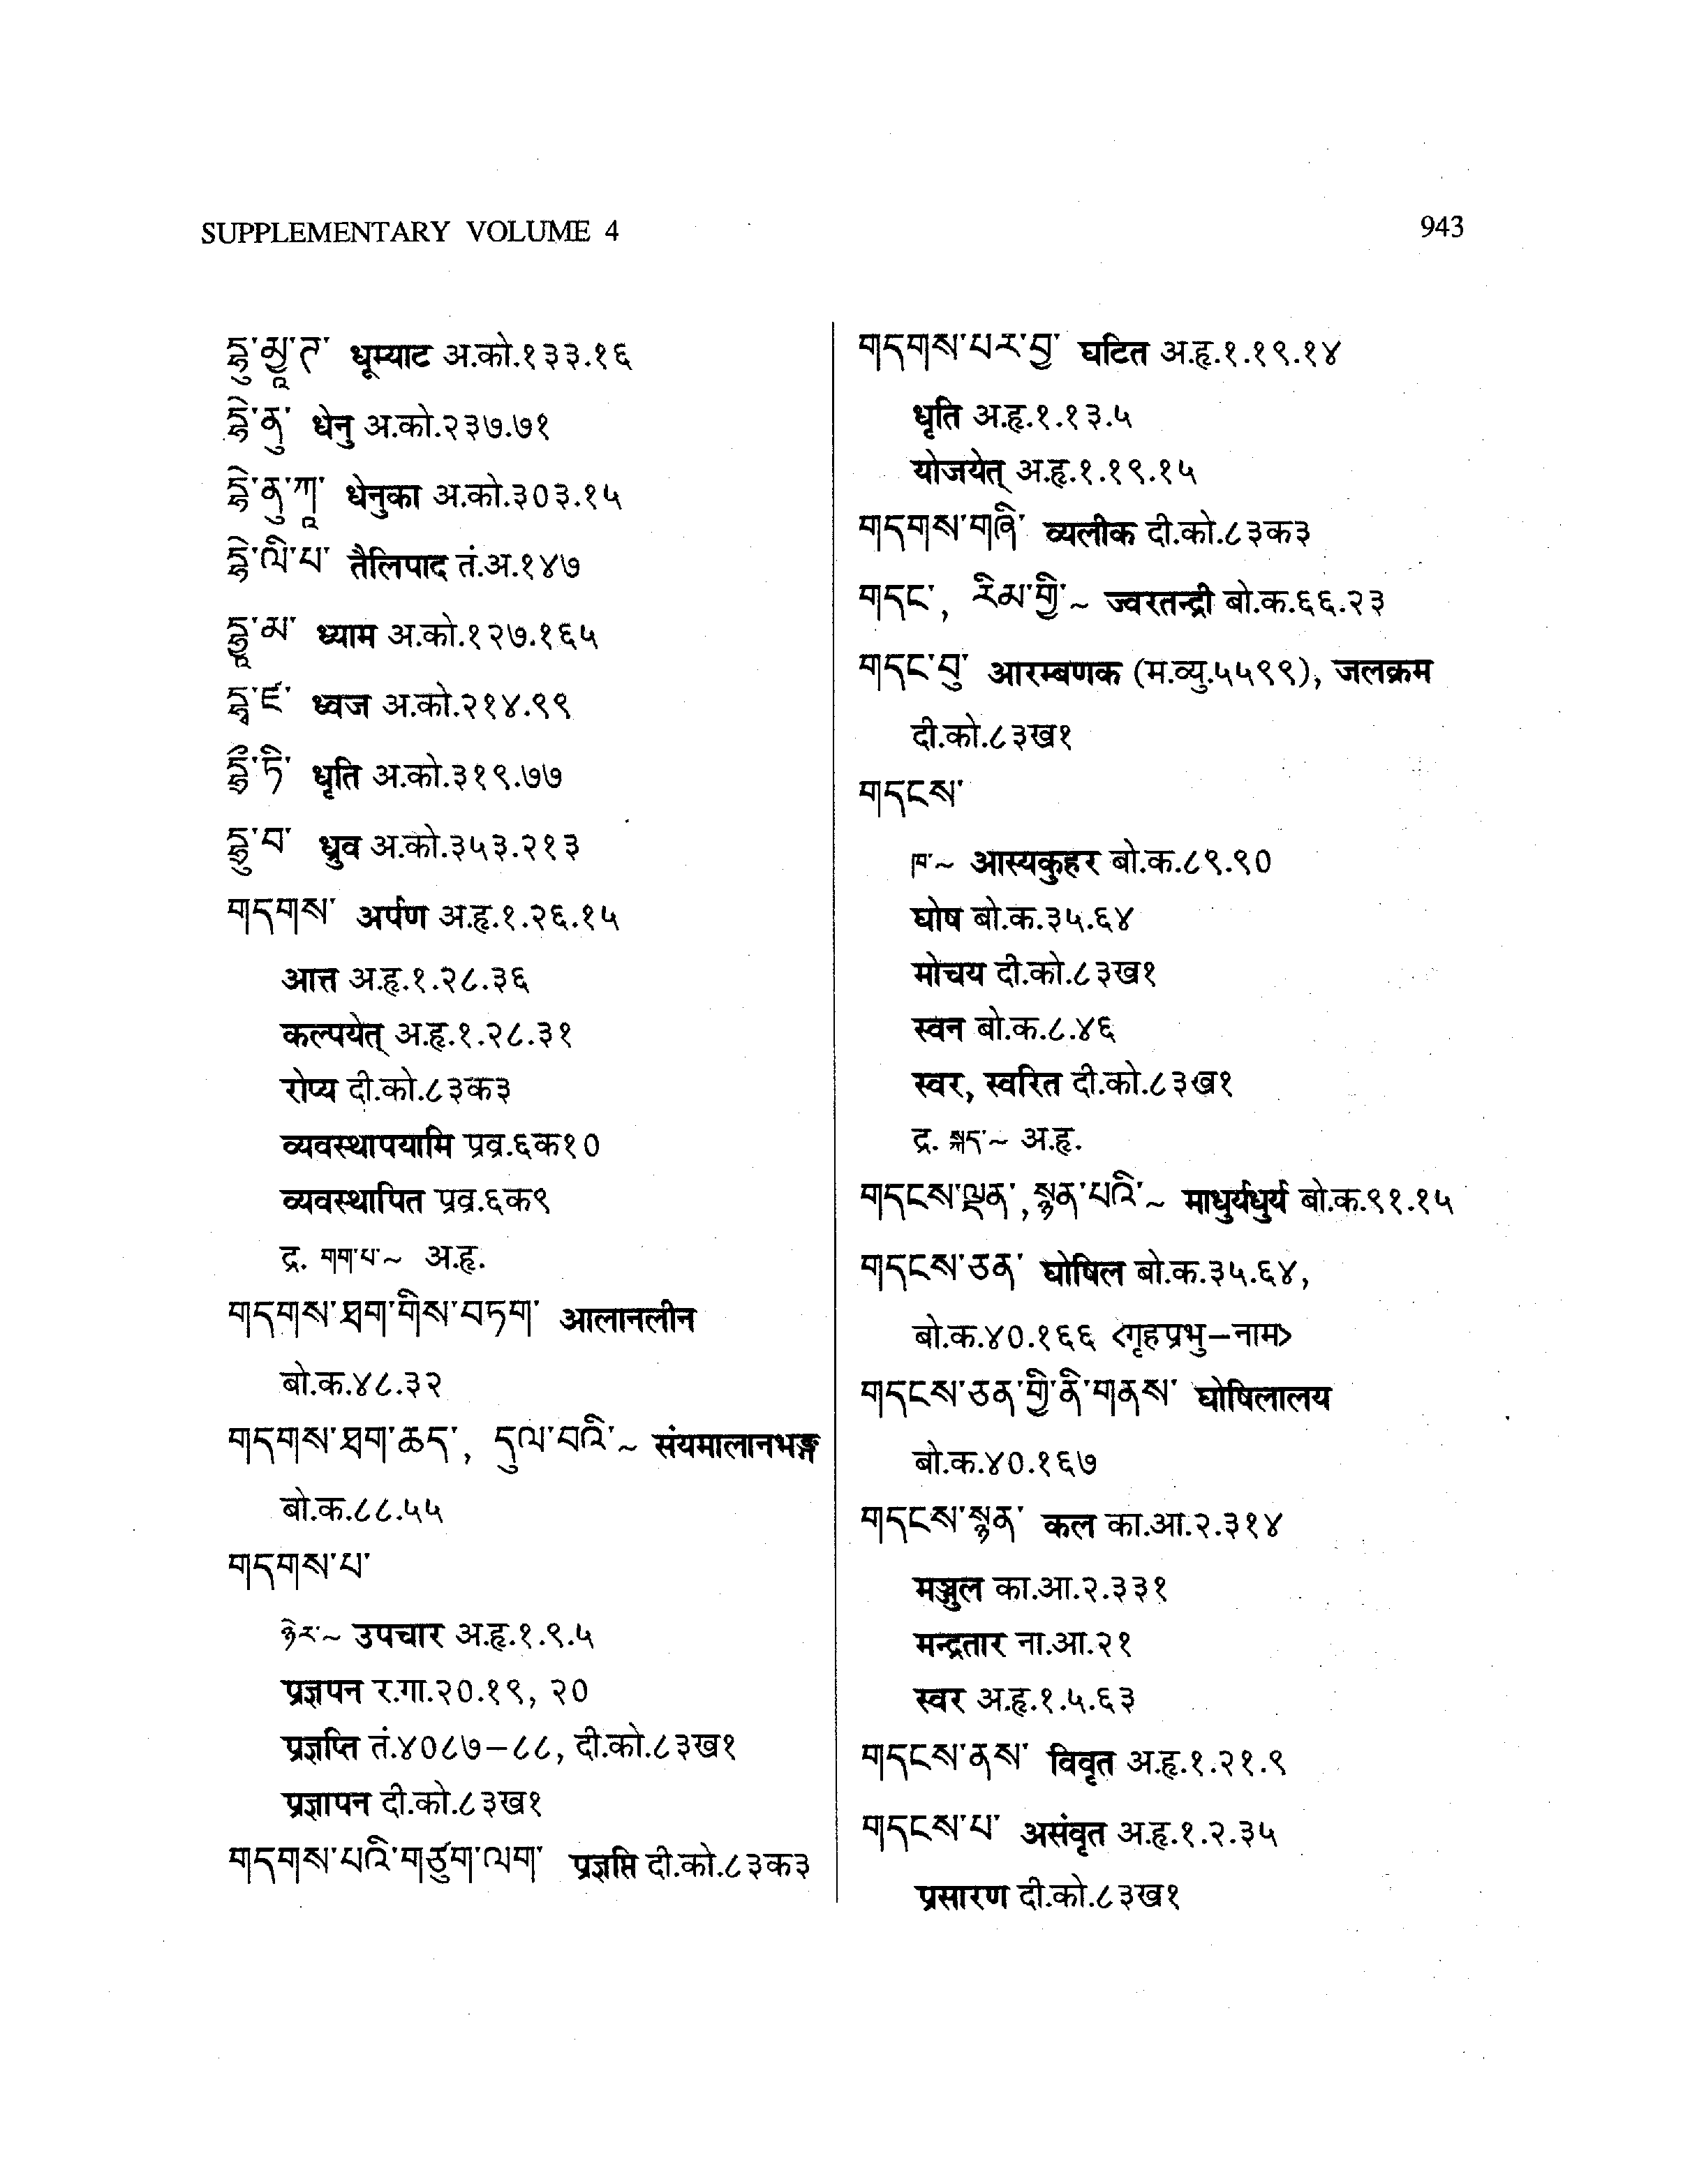 SUPPLEMENTARY VOLUME 4
943
དྷུ་མྱཱ་ཊ་ धूम्याट अ.को.१३३.१६
དྷེ་ནུ་ धेनु अ.को.२३७.७१
དྷེ་ནུ་ཀཱ་ धेनुका अ.को.३०३.१५
དྷེ་ལི་པ་ तैलिपाद तं.अ.१४७
དྷྱཱ་མ་ ध्याम अ.को.१२७.१६५
དྷྭ་ཛ་ ध्वज अ.को.२१४.९९
དྷྲྀ་ཏི་ धृति अ.को.३१९.७७
དྷྲུ་བ་ ध्रुव अ.को.३५३.२१३
གདགས་ अर्पण अ.हृ.१.२६.१५
आत्त अ.हृ.१.२८.३६
कल्पयेत् अ.हृ.१.२८.३१
रोप्य दी.को.८३क३
व्यवस्थापयामि प्रव्र.६क१०
व्यवस्थापित प्रव्र.६क९
द्र. གག་པ་~ अ.हृ.
གདགས་ཐག་གིས་བཏག་ आलानलीन
बो.क.४८.३२
གདགས་ཐག་ཆད་, དུལ་བའི་~ संयमालानभङ्ग
बो.क.८८.५५
གདགས་པ་
ཉེར་~ उपचार अ.हृ.१.९.५
प्रज्ञपन र.गा.२०.१९, २०
प्रज्ञप्ति तं.४०८७–८८, दी.को.८३ख१
प्रज्ञापन दी.को.८३ख१
གདགས་པའི་གཙུག་ལག་ प्रज्ञप्ति दी.को.८३क३
གདགས་པར་བྱ་ घटित अ.हृ.१.१९.१४
धृति अ.हृ.१.१३.५
योजयेत् अ.हृ.१.१९.१५
གདགས་གཞི་ व्यलीक दी.को.८३क३
གདང་, རིམ་གྱི་~ ज्वरतन्द्री बो.क.६६.२३
གདང་བུ་ आरम्बणक (म.व्यु.५५९९), जलक्रम
दी.को.८३ख१
གདངས་
ཁ་~ आस्यकुहर बो.क.८९.९०
घोष बो.क.३५.६४
मोचय दी.को.८३ख१
स्वन बो.क.८.४६
स्वर, स्वरित दी.को.८३ख१
द्र. སྐད་~ अ.हृ.
གདངས་ལྡན་, སྙན་པའི་~ माधुर्यधुर्य बो.क.९१.१५
གདངས་ཅན་ घोषिल बो.क.३५.६४,
बो.क.४०.१६६ <गृहप्रभु–नाम>
གདངས་ཅན་གྱི་ནི་གནས་ घोषिलालय
बो.क.४०.१६७
གདངས་སྙན་ कल का.आ.२.३१४
मञ्जुल का.आ.२.३३१
मन्द्रतार ना.आ.२१
स्वर अ.हृ.१.५.६३
གདངས་ནས་ विवृत अ.हृ.१.२१.९
གདངས་པ་ असंवृत अ.हृ.१.२.३५
प्रसारण दी.को.८३ख१